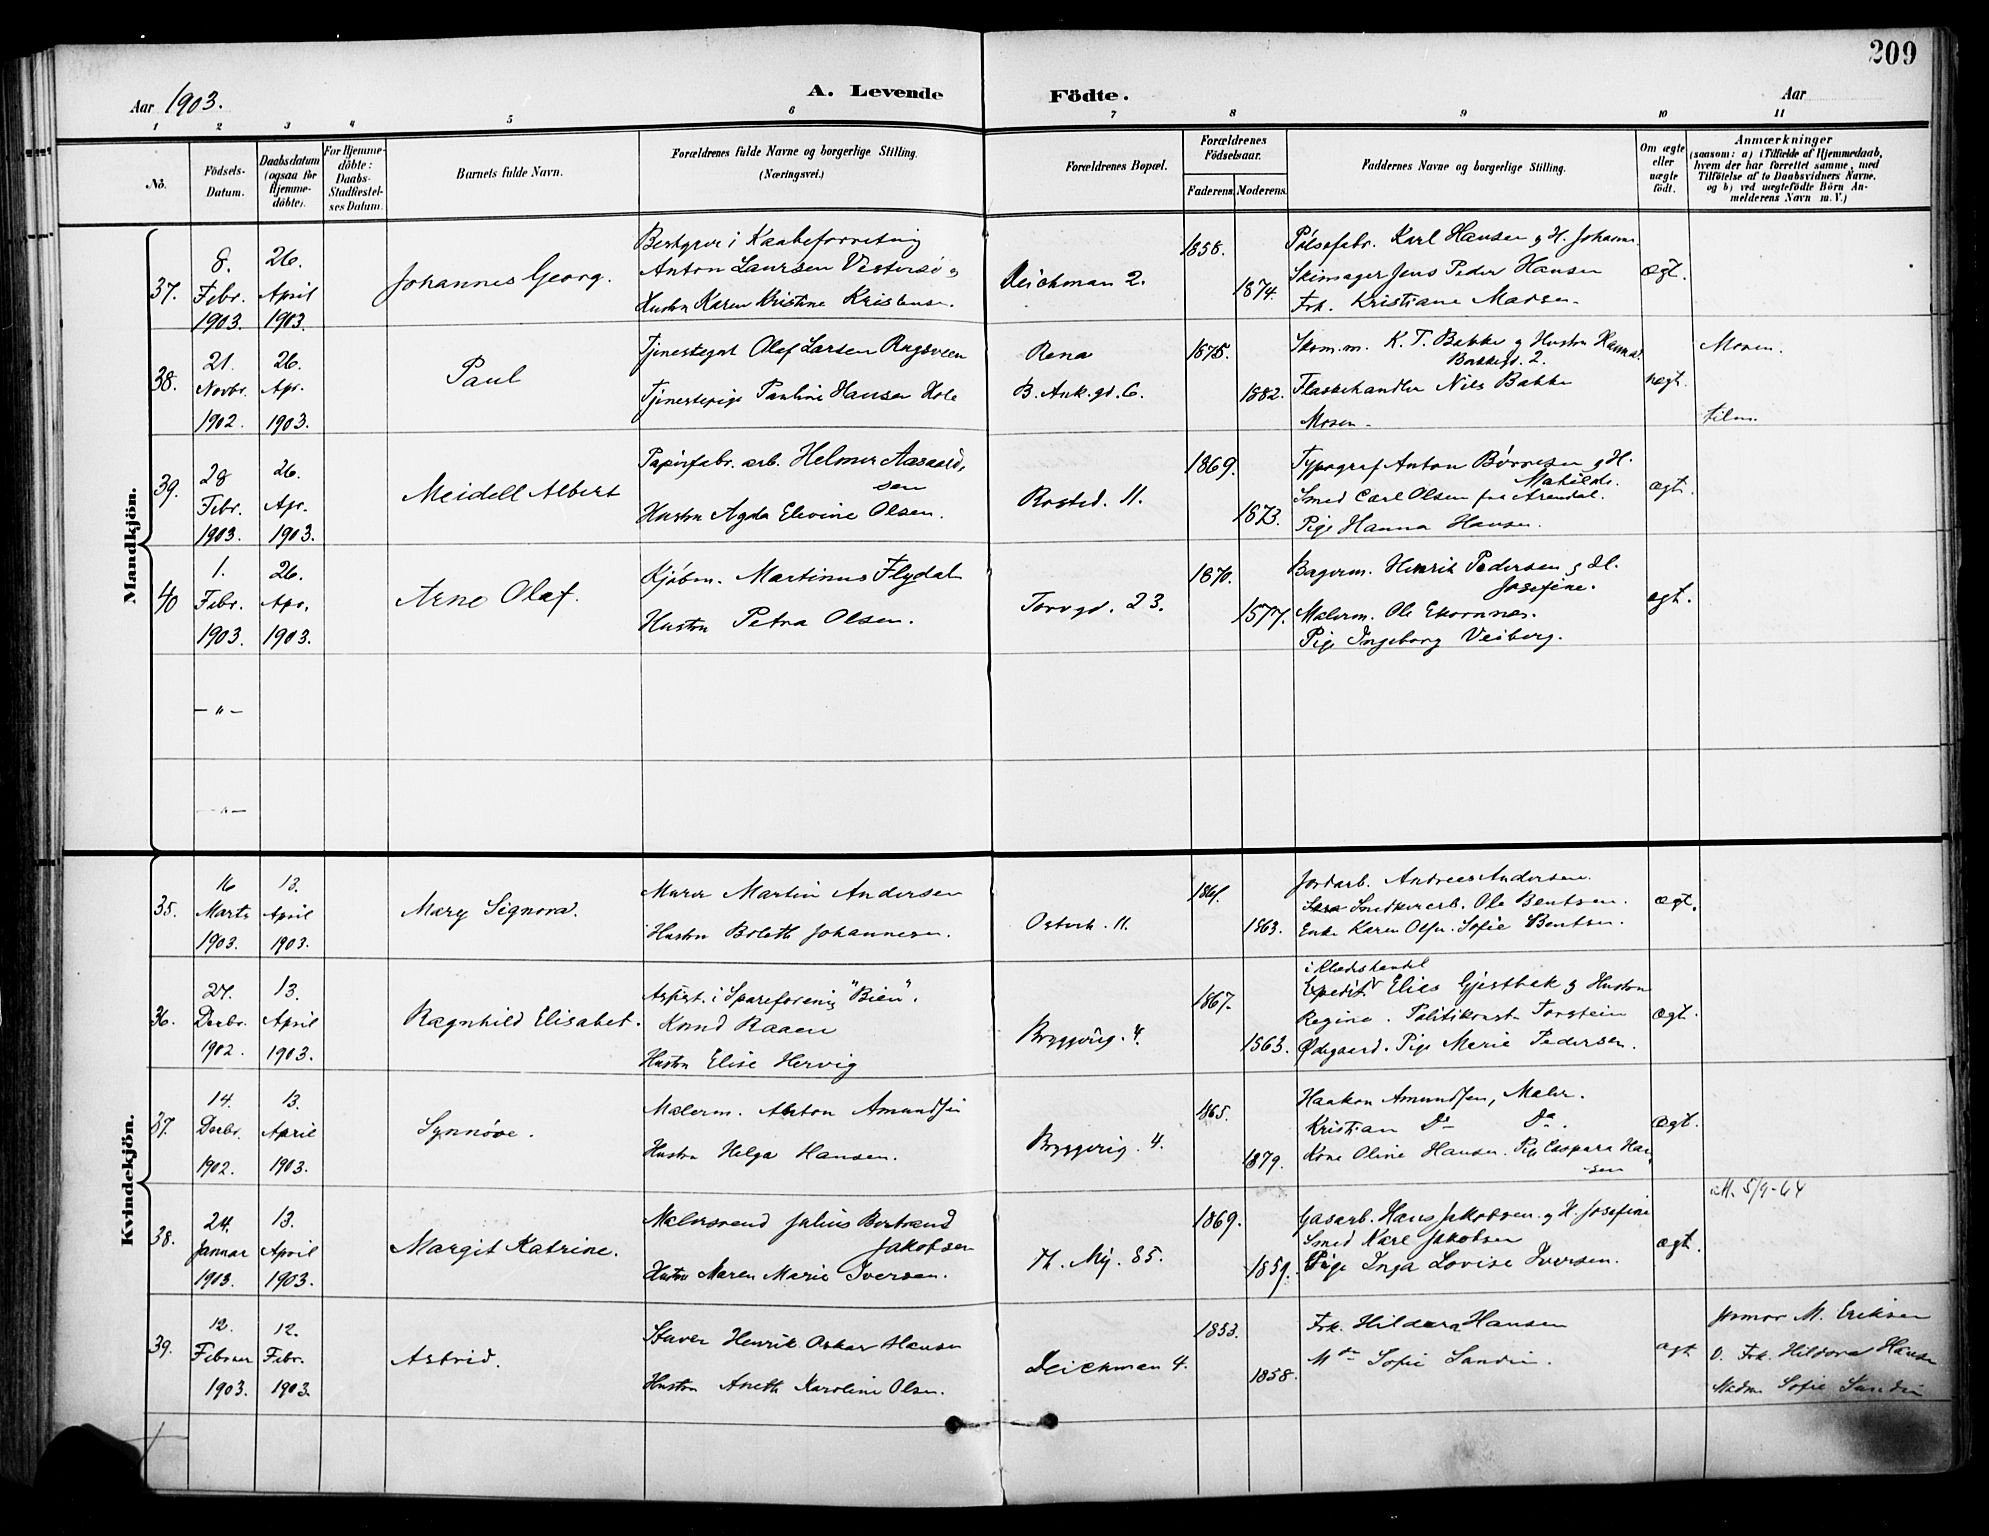 209
Aar 1903.
A. Levende Födte.
Aar
1 2 3 4 5 6 7 8 9 10 11
No.
Födsels-Datum.
Daabsdatum (ogsaa for Hjemme-döbte).
For Hjemme-döbte: Daabs-Stadfæstel-ses Datum.
Barnets fulde Navn.
Forældrenes fulde Navne og borgerlige Stilling. (Næringsvei.)
Forældrenes Bopæl.
Forældrenes Födselsaar.
Faderens. Moderens.
Faddernes Navne og borgerlige Stilling.
Om ægte eller uægte födt.
Anmærkninger
(saasom: a) i Tilfælde af Hjemmedaab,
hvem der har forrettet samme, med
Tilföielse af to Daabsvidners Navne,
og b) ved uægtefödte Börn An-
melderens Navn m. V.)
Mandkjön.
37.
8. Febr. 1903.
26. April 1903.
Johannes Georg.
Bestyrer i Kaabeforretning
Anton Laursen Vestersø og
Hustru Karen Kristine Kristensen.
Deichman 2.
1858.
1874.
Pølsefabr. Karl Hansen og H. Johann.
Skomager Jens Peder Hansen
Frk. Kristiane Madsen.
ægt.
38.
21. Novbr. 1902.
26. Apr. 1903.
Paul
Tjenestegut Olaf Larsen
Tjenestepige Pauline Hansen Hole
Rena
B. Ank. gd. 6.
1875.
1882.
Skom. m. K. T. Bakke og Hustru Hanna.
2.
Flaskehandler Nils Bakke
Moren.
uægt.
Moren.
tilm.
39.
28 Febr. 1903.
26. Apr. 1903.
Meidell Albert
Papirfabr. arb. Helmer Aasvald-
sen
Hustru Agda Elevine Olsen.
Rosted. 11.
1869.
1873.
Typograf Anton Børresen og H.
Mathilde.
Smed Carl Olsen fra Arendal.
Pige Hanna Hansen.
ægt.
40
1. Febr. 1903.
26. Apr. 1903.
Arne Olaf.
Kjøbm. Martinus Flydal
Hustru Petra Olsen.
Torvgd. 23.
1870.
1877.
Bagerm. Henrik Pedersen og H.
Josefine.
Malerm. Ole Ekornnes.
Pige Ingeborg Veiberg.
ægt.
— " —
— " —
Kvindekjön.
35.
16 Marts 1903.
13. April 1903.
Mary Signora.
Murer Martin Andersen
Hustru Boleth Johannesen.
Osterh. 11.
1861.
1863.
Jordarb. Andreas Andersen.
Snedkerarb. Ole Bentsen.
Enke Karen Olsen. Sofie Bentsen.
ægt.
36.
27. Decbr. 1902.
13. April 1903.
Ragnhild Elisabet.
Assist. i Spareforening "Bien".
Konrad Raaen
Hustru Elise Hervig
Bryggerig. 4.
1867.
1863.
i Klædeshandel
Expedit Elias Gjestbek og Hustru
Regine. Politikonst. Torstein
Ødegaard. Pige Marie Pedersen.
ægt.
37.
14. Decbr. 1902.
13. April 1903.
Synnøve.
Malerm. Anton Amundsen
Hustru Helga Hansen.
Bryggerig. 4.
1865.
1879.
Haakon Amundsen, Maler.
Kristian Do Do.
Kone Oline Hansen. Pige Caspara Han-
sen
ægt.
38.
24. Januar 1903.
13. April 1903.
Margit Katrine.
Malersvend Julius Bertrand
Jakobsen
Hustru Maren Marie Iversen.
Th. Mij. 85.
1869.
1859.
Gasarb. Hans Jakobsen og H. Josefine
Smed Karl Jakobsen
Pige Inga Lovise Iversen.
ægt.
utt. 5/9-64
39.
12. Februar 1903.
12. Febr. 1903.
Astrid.
Stuver Henrik Oskar Hansen
Hustru Aneth Karoline Olsen.
Deichman 4.
1853.
1858.
Frk. Hildora Hansen
Mdm Sofie Sandin.
ægt
Jormor M. Eriksen
v. Frk. Hildora Hansen
Madm Sofie Sandin